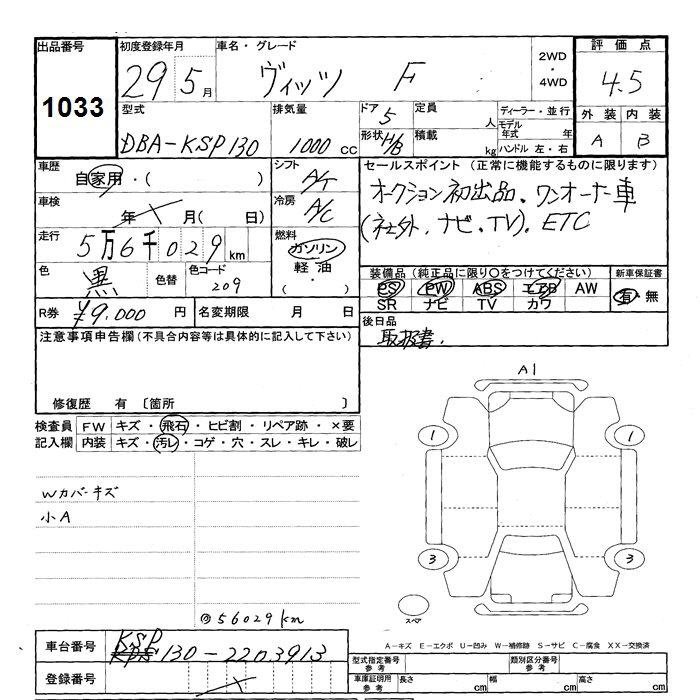 出品番号 初度登録年月 車名・グレード 2WD・4WD 評価点
1033 29 5月 ヴィッツ F 4.5
型式 排気量 ドア 定員 ディーラー・並行 外装 内装
DBA-KSP130 1000 cc 5 人 モデル年式 年 A B
形状 H/B 積載 kg ハンドル 左・右
車歴 自家用・( ) シフト A/T セールスポイント (正常に機能するものに限ります)
車検 年 月( 日) 冷房 A/C オークション初出品、ワンオーナー車
(社外、ナビ、TV)、ETC
走行 5万6千029km 燃料 ガソリン 軽油 ( ・ )
色 黒 色替 色コード 209 装備品(純正品に限り○をつけてください) 新車保証書
PS PW ABS エアB AW 有・無
SR ナビ TV カワ
R券 ¥9,000 円 名変期限 月 日 後日品
取扱書、
注意事項申告欄(不具合内容等は具体的に記入して下さい)
修復歴 有 〔箇所 〕
A1
検査員 FW キズ・飛石・ヒビ割・リペア跡・×要
記入欄 内装 キズ・汚レ・コゲ・穴・スレ・キレ・破レ
1 1
Wカバーキズ
小A
3 3
スペア
@56029km
A-キズ E-エクボ U-凹み W-補修跡 S-サビ C-腐食 XX-交換済
車台番号 KSP130-2203913
型式指定番号 参考 類別区分番号 参考
登録番号 車庫証明用 参考 長さ cm 幅 cm 高さ cm